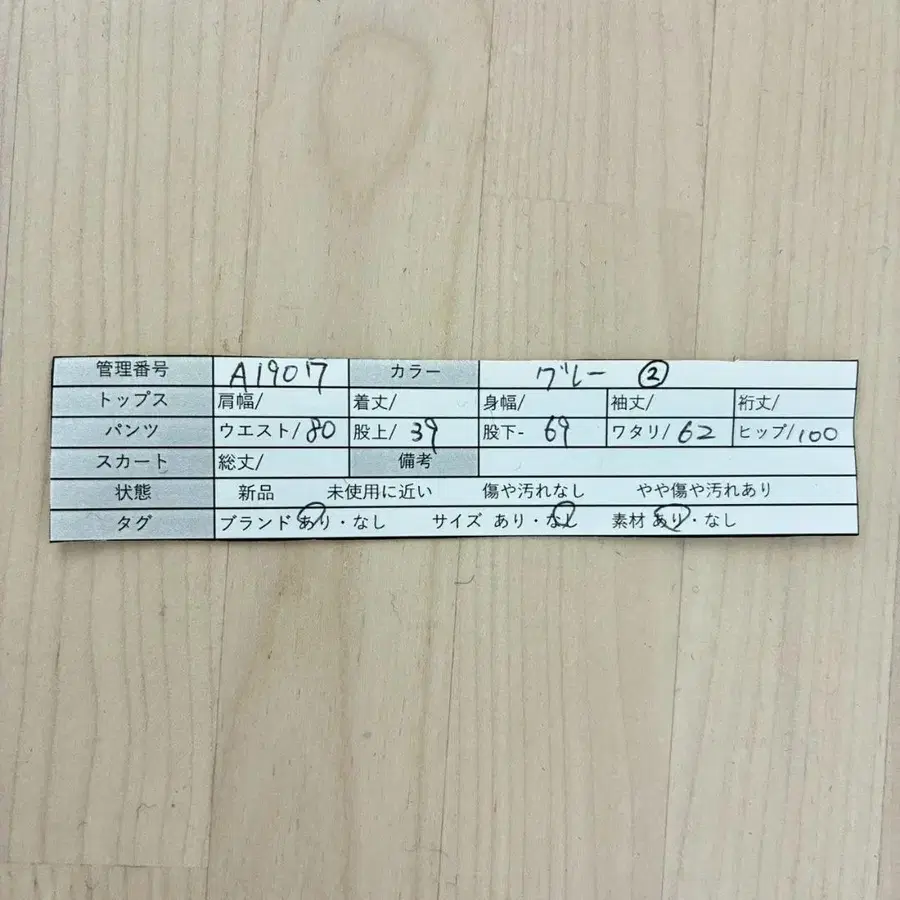 管理番号 A1907 カラー グレー ②
トップス 肩幅/ 着丈/ 身幅/ 袖丈/ 裄丈/
パンツ ウエスト/80 股上/39 股下-69 ワタリ/62 ヒップ/100
スカート 総丈/ 備考
状態 新品 未使用に近い 傷や汚れなし やや傷や汚れあり
タグ ブランド あり・なし サイズ あり・なし 素材 あり・なし